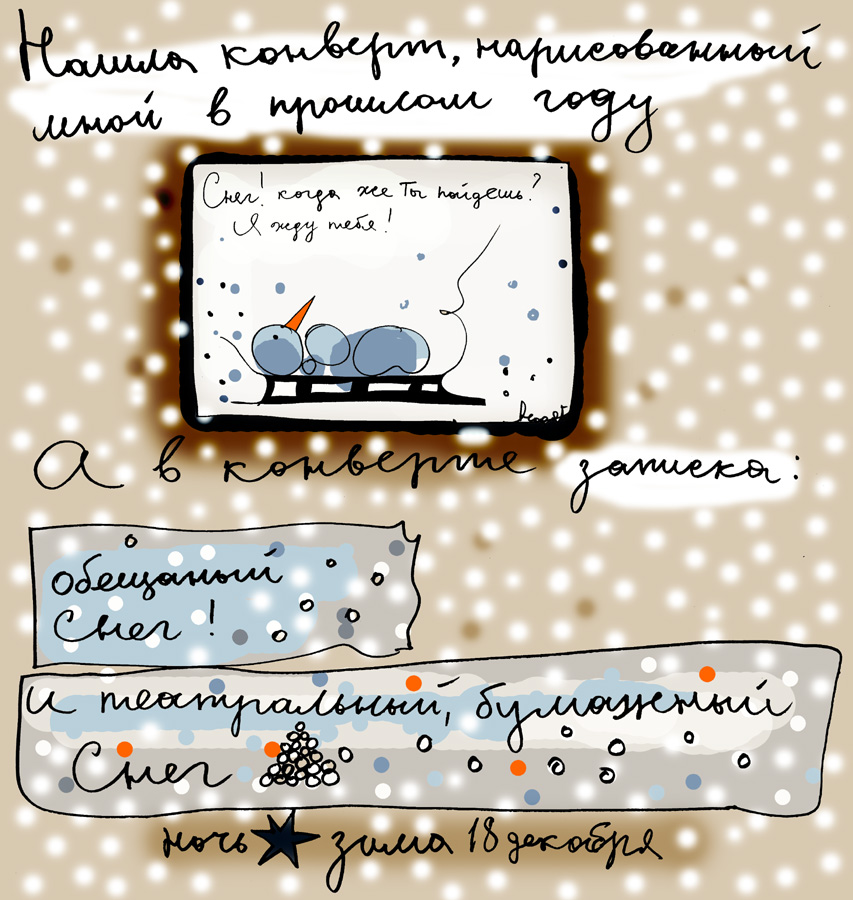 Нашла конверт, нарисованный
мной в прошлом году
Снег! когда же Ты пойдешь?
Я жду тебя!
А в конверте записка:
обещаный
Снег!
и театральный, бумажный
Снег
ночь зима 18 декабря